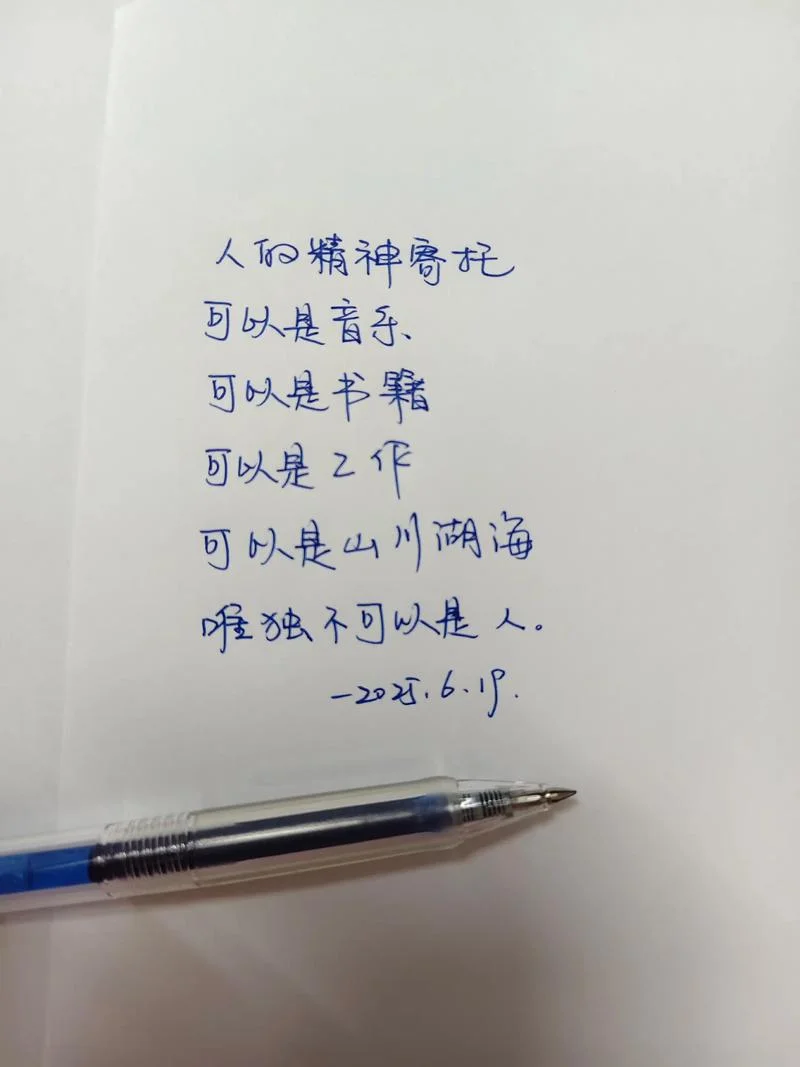 人的精神寄托
可以是音乐、
可以是书籍
可以是工作
可以是山川湖海
唯独不可以是人。
—2025.6.19.